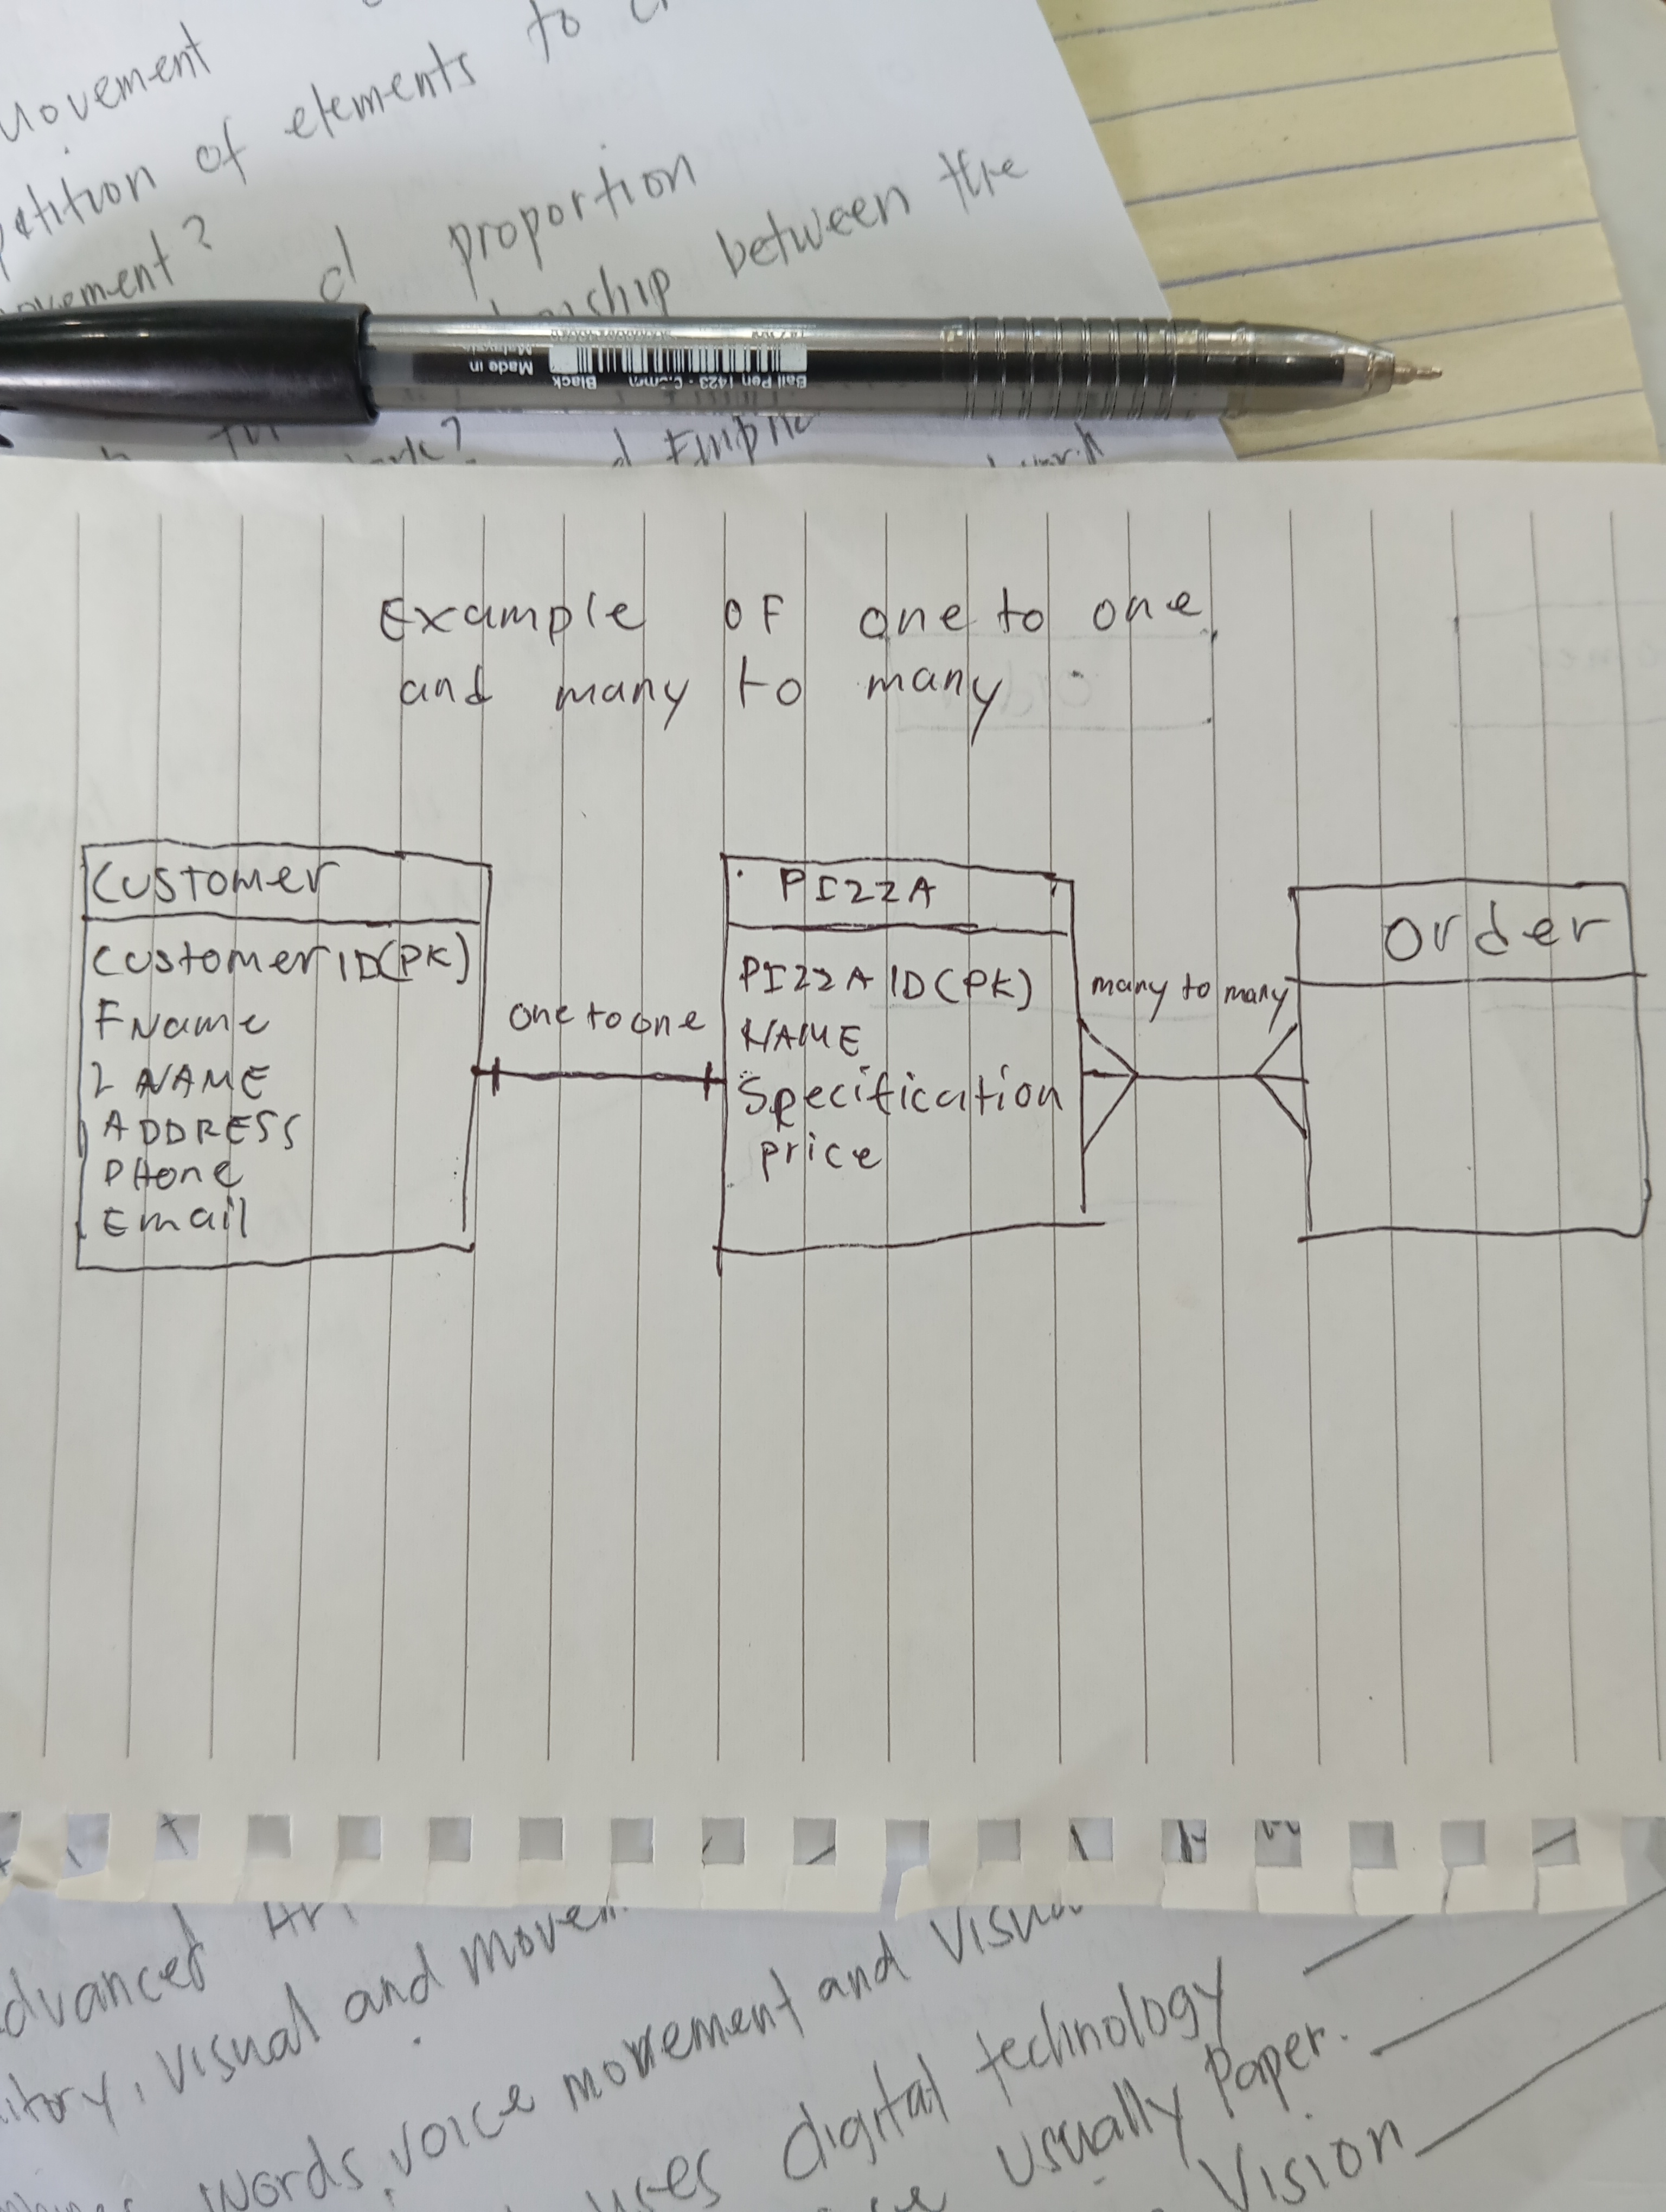 Movement
of elements to
movement?
proportion
between the
Ball Pen 1423
Black
Made in
Malaysia
Example OF one to one
and many to many
Customer
Customer ID(PK)
FName
L NAME
ADDRESS
PHone
Email
one to one
PIZZA
PIZZA ID(PK)
NAME
Specification
price
many to many
Order
Advanced
visual and
words, voice movement and
uses digital technology
usually Paper.
Vision